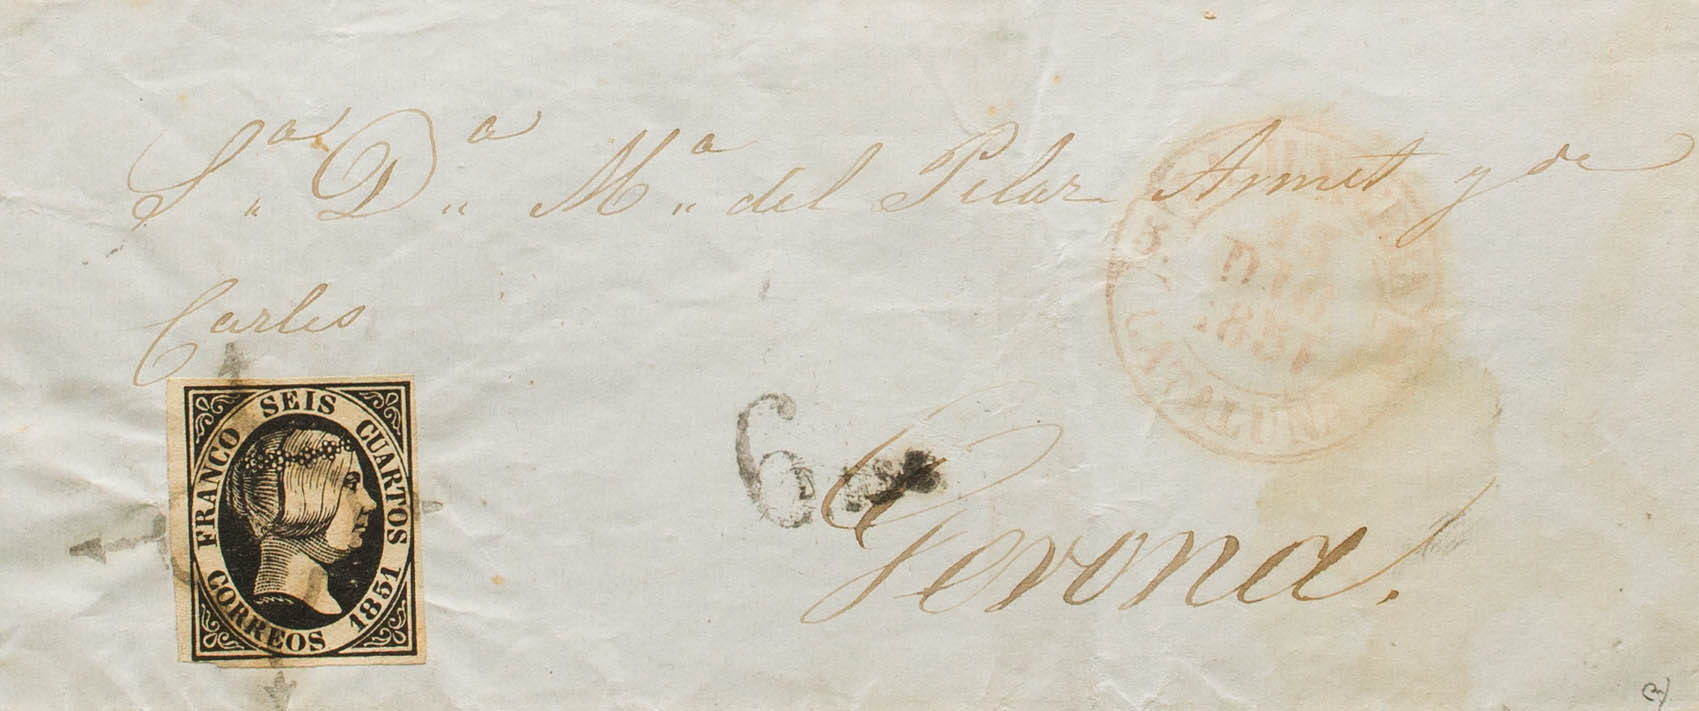 S.ª D.ª M.ª del Pilar Armet y de
Carles
Gerona.
6
FRANCO SEIS CUARTOS
CORREOS 1851
DIC
1851
CATALUÑA